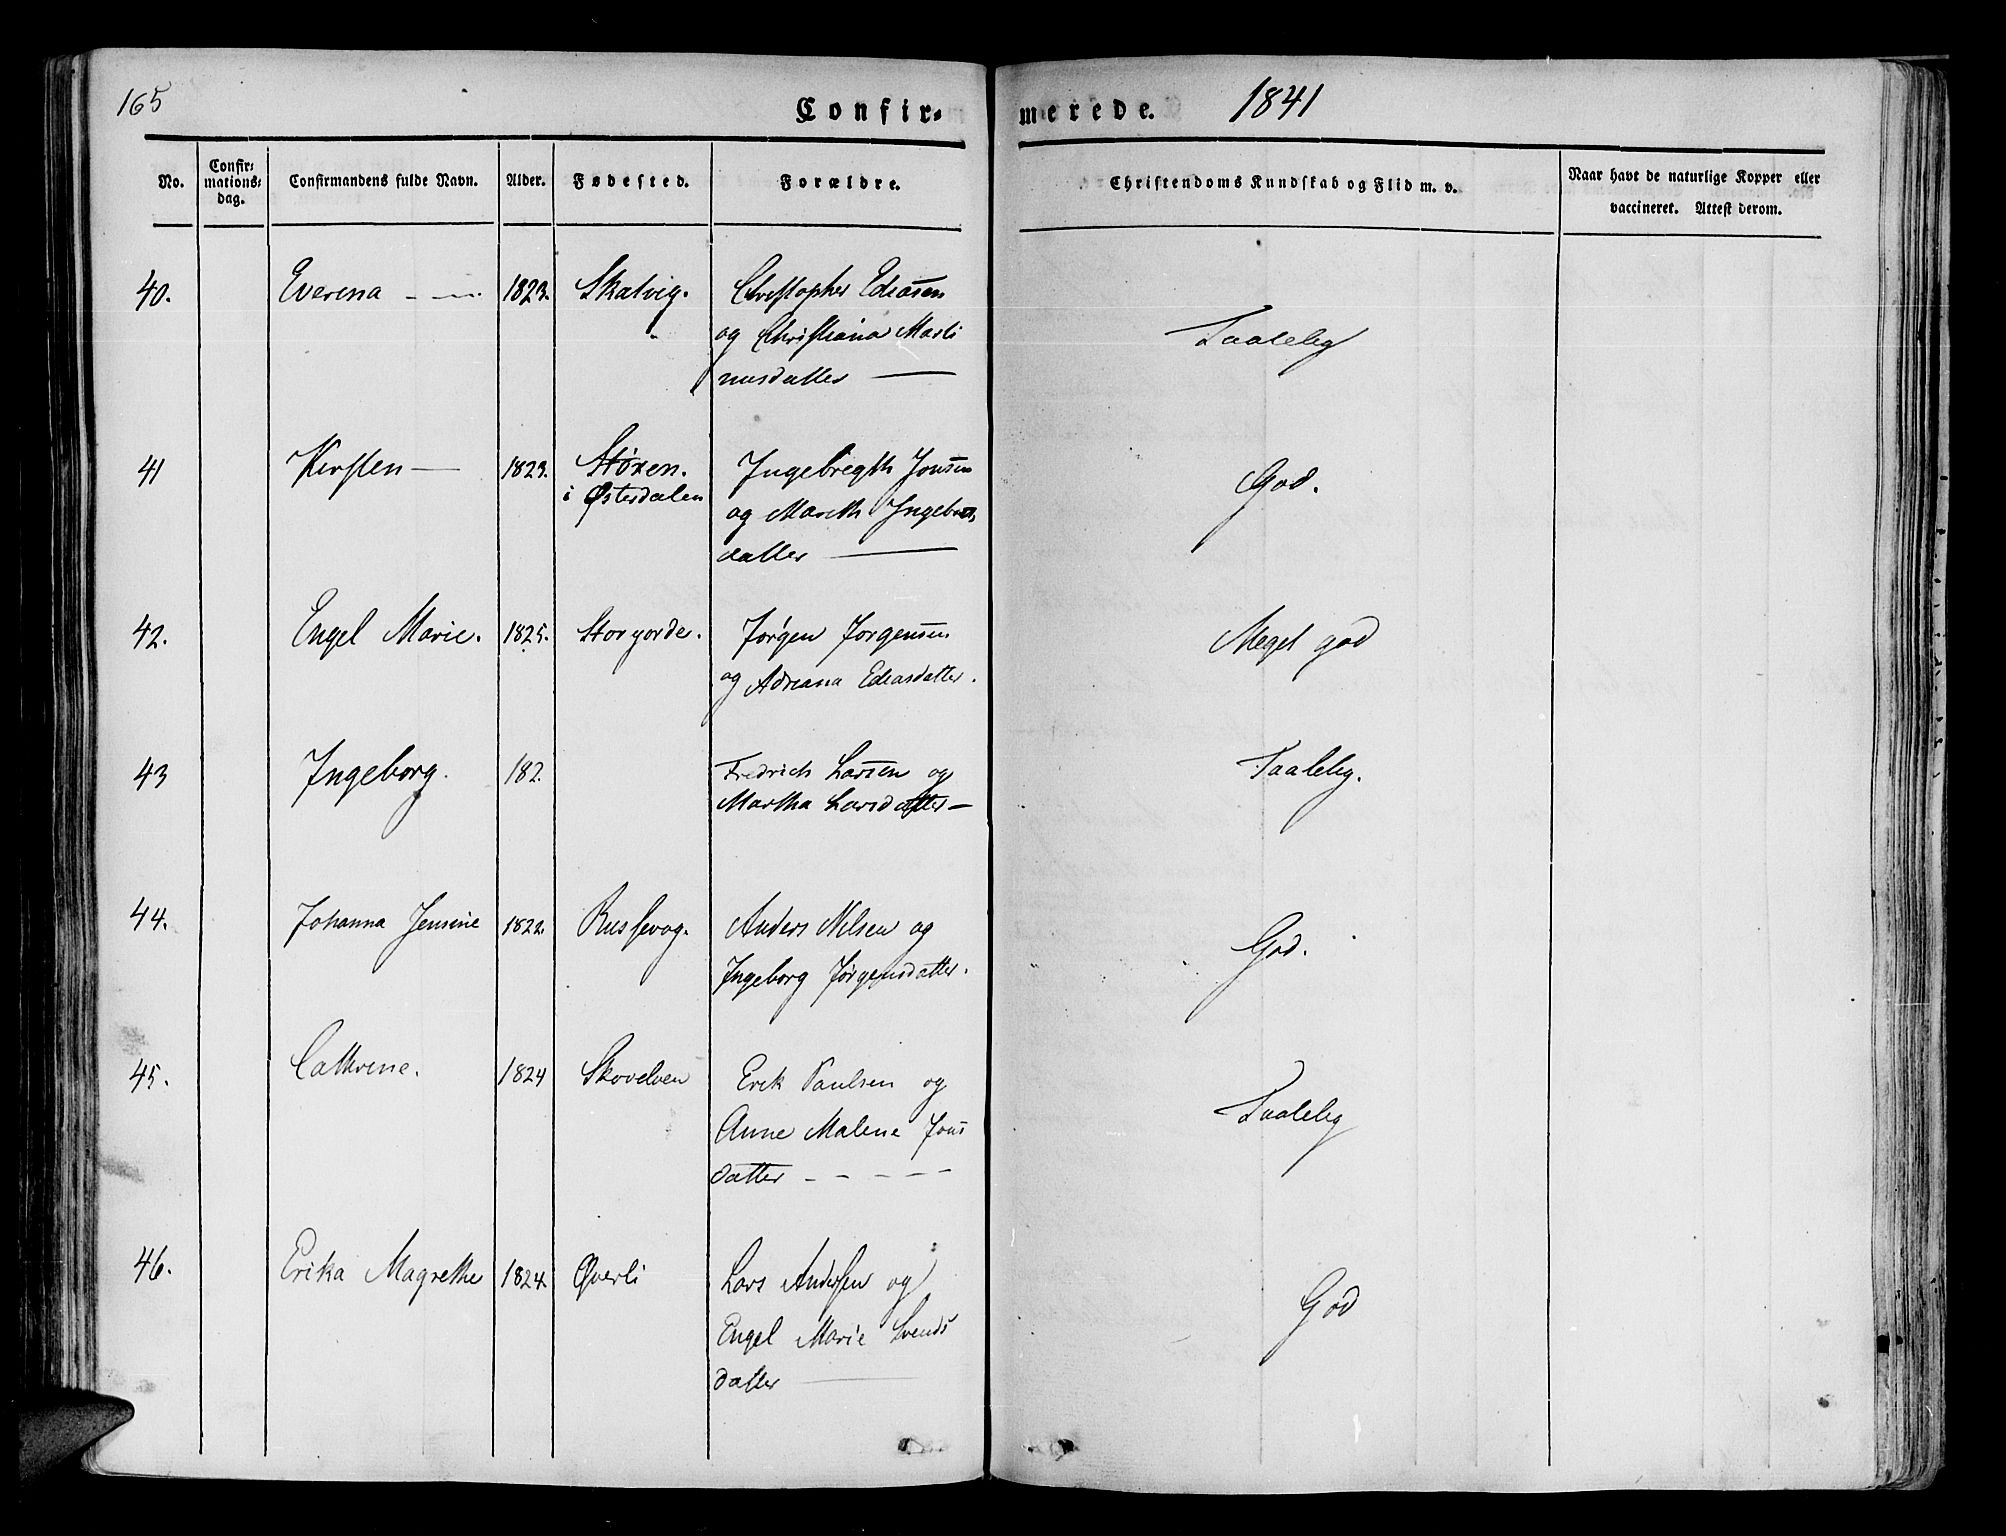 165
Confir- merede. 1841
No. Confir-mations-dag. Confirmandens fulde Navn. Alder. Fødested. Forældre. Christendoms Kundskab og Flid m. v. Naar havt de naturlige Kopper eller vaccineret. Attest derom.
40. Everina 1823. Skatvig. Christopher Edissen
og Christiana Marti
nusdatter — Taalelig
41 Kirsten — 1823. Støren. Ingebregth Jonsen
i Østerdalen og Mareth Ingebr
datter — God.
42. Engel Marie. 1825. Storjorde. Jørgen Jorgensen Meget god
og Adriana Ediasdatter.
43 Ingeborg. 182 Fredrich Larsen og Taalelig.
Martha Larsdatter —
44. Johanna Jensine 1822. Russevog. Anders Nilsen og God.
Ingeborg Jørgensdatter.
45. Cathrine. 1824 Skovelven Erik Paulsen og
Anne Malene Jons Taalelig
datter - - - - -
46. Erika Magrethe 1824. Øverli Lars Andersen og God
Engel Marie Svends
datter —